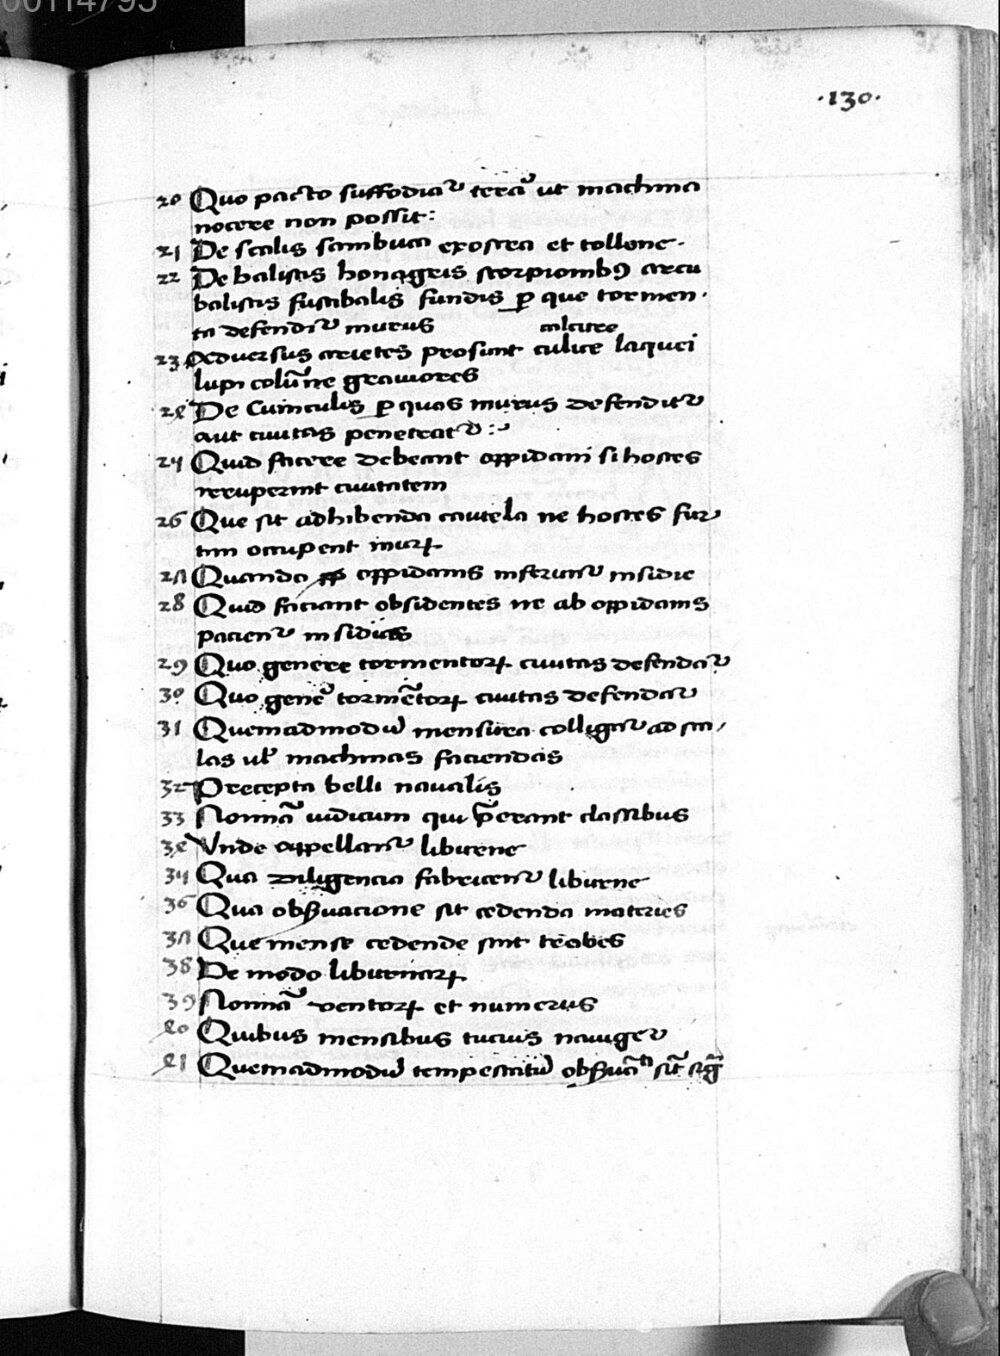 00114795
·130·
20 Quo pacto suffodiar᷑ terā ut machina
nocere non possit:
21 De scalis sambuca exostra et tollene·
22 De balistis honagris scorpionibꝯ arcu
balistis fustibalis fundis ꝑ que tormen·
ta defendit᷑ murus
calcitre
23 Adversus arietes prosunt culcite laquei
lupi colūne graviores
24 De Cuniculis ꝑ quos murus defendit᷑
aut civitas penetrat᷑ :·
25 Quid facere debeant oppidani si hostes
reruperint civitatem
26 Que sit adhibenda cautela ne hostes fur
tim occupent muꝝ
27 Quando oppidanis inferunt᷑ insidie
28 Quid faciant obsidentes ne ab oppidanis
pacient᷑ insidias
29 Quo genere tormentoꝝ civitas defendat᷑
30 Quo gene᷑ tormētoꝝ civitas defendat᷑
31 Quemadmodū mensura colligat᷑ ad sca/
las ul᷑ machinas faciendas
32 Precepta belli navalis
33 Nomīa iudicum qui p̄erant classibus
34 Vnde appellant᷑ liburne
35 Qua diligencia fabricent᷑ liburne
36 Qua obẞuacione sit cedenda materies
37 Que mense cedende sint trabes
38 De modo liburnaꝝ
39 Nomīa ventoꝝ et numerus
40 Quibus mensibus tucius naviget᷑
41 Quemadmodū tempestatū